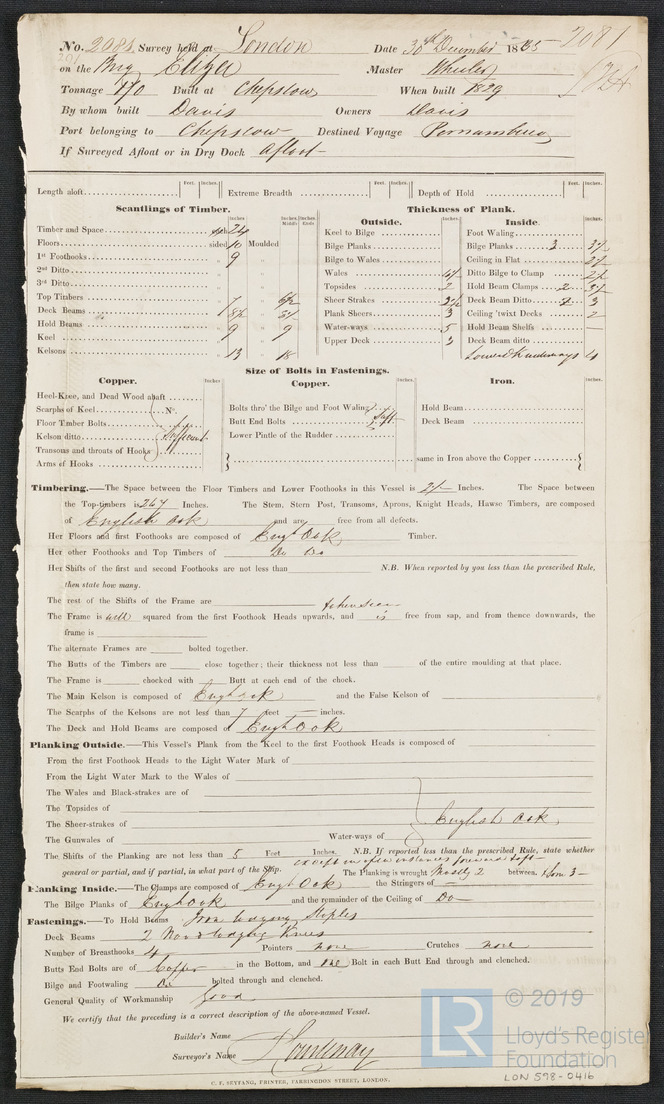 No. 2081 Survey held at London Date 30th December 1835 2081
on the Brig Eliza Master Wheeler
Tonnage 170 Built at Chepstow When built 1829
By whom built Davis Owners Davis
Port belonging to Chepstow Destined Voyage Pernambuco
If Surveyed Afloat or in Dry Dock Afloat
Length aloft Feet. Inches. Extreme Breadth Feet. Inches. Depth of Hold Feet. Inches.
Scantlings of Timber.
Inches Inches Middle Inches Ends
Timber and Space 24
Floors sided 10 Moulded
1st Foothooks 9
2nd Ditto
3rd Ditto
Top Timbers
Deck Beams
Hold Beams 9 9
Keel
Kelsons 13 18
Thickness of Plank.
Outside. Inches
Keel to Bilge
Bilge Planks
Bilge to Wales
Wales
Topsides 2
Sheer Strakes
Plank Sheers 3
Water-ways 5
Upper Deck 3
Inside. Inches.
Foot Waling
Bilge Planks 3
Ceiling in Flat
Ditto Bilge to Clamp
Hold Beam Clamps 2
Deck Beam Ditto 3
Ceiling 'twixt Decks 2
Hold Beam Shelfs —
Deck Beam ditto
4
Size of Bolts in Fastenings.
Copper. Inches
Heel-Knee, and Dead Wood abaft
Scarphs of Keel N°.
Floor Timber Bolts
Kelson ditto Sufficient
Transoms and throats of Hooks
Arms of Hooks
Copper. Inches.
Bolts thro' the Bilge and Foot Waling
Butt End Bolts Suft
Lower Pintle of the Rudder
Iron. Inches
Hold Beam
Deck Beam
same in Iron above the Copper
Timbering.—The Space between the Floor Timbers and Lower Foothooks in this Vessel is Inches. The Space between
the Top-timbers is Inches. The Stem, Stern Post, Transoms, Aprons, Knight Heads, Hawse Timbers, are composed
of English Oak and are free from all defects.
Her Floors and first Foothooks are composed of Engl Oak Timber.
Her other Foothooks and Top Timbers of Do Do
Her Shifts of the first and second Foothooks are not less than N.B. When reported by you less than the prescribed Rule,
then state how many.
The rest of the Shifts of the Frame are
The Frame is well squared from the first Foothook Heads upwards, and is free from sap, and from thence downwards, the
frame is
The alternate Frames are bolted together.
The Butts of the Timbers are close together; their thickness not less than of the entire moulding at that place.
The Frame is chocked with Butt at each end of the chock.
The Main Kelson is composed of Engl oak and the False Kelson of
The Scarphs of the Kelsons are not less than 7 feet — inches.
The Deck and Hold Beams are composed of Engl Oak
Planking Outside.—This Vessel's Plank from the Keel to the first Foothook Heads is composed of
From the first Foothook Heads to the Light Water Mark of
From the Light Water Mark to the Wales of
The Wales and Black-strakes are of
The Topsides of
The Sheer-strakes of English Oak
The Gunwales of Water-ways of
The Shifts of the Planking are not less than 5 Feet Inches. N.B. If reported less than the prescribed Rule, state whether
except in a few instances forward 4 feet
general or partial, and if partial, in what part of the Ship. The Planking is wrought Mostly 2 between. Some 3—
Planking Inside.—The Clamps are composed of Engl Oak the Stringers of —
The Bilge Planks of Engl Oak and the remainder of the Ceiling of Do—
Fastenings.—To Hold Beams Iron lodging Staples
Deck Beams 2 Wood lodging Knees
Number of Breasthooks 4 Pointers none Crutches none
Butts End Bolts are of Copper in the Bottom, and one Bolt in each Butt End through and clenched.
Bilge and Footwaling Do bolted through and clenched.
General Quality of Workmanship Good
We certify that the preceding is a correct description of the above-named Vessel.
Builder's Name
Surveyor's Name Courtenay
C. F. SEYFANG, PRINTER, FARRINGDON STREET, LONDON.
LR © 2019
Lloyd's Register
Foundation
LON 598-0416